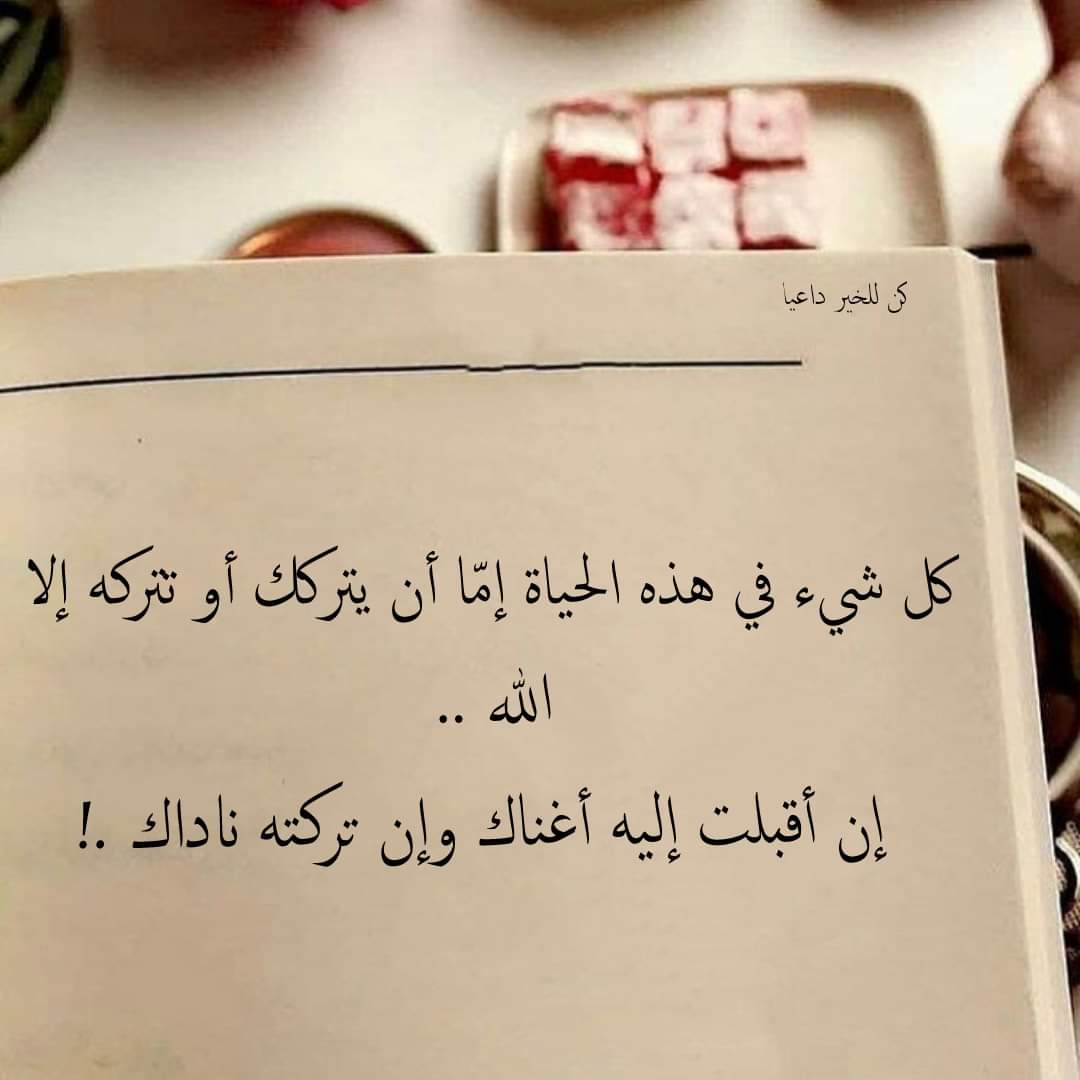 كن للخير داعيا
كل شيء في هذه الحياة إمّا أن يتركك أو تتركه إلا
الله ..
إن أقبلت إليه أغناك وإن تركته ناداك .!